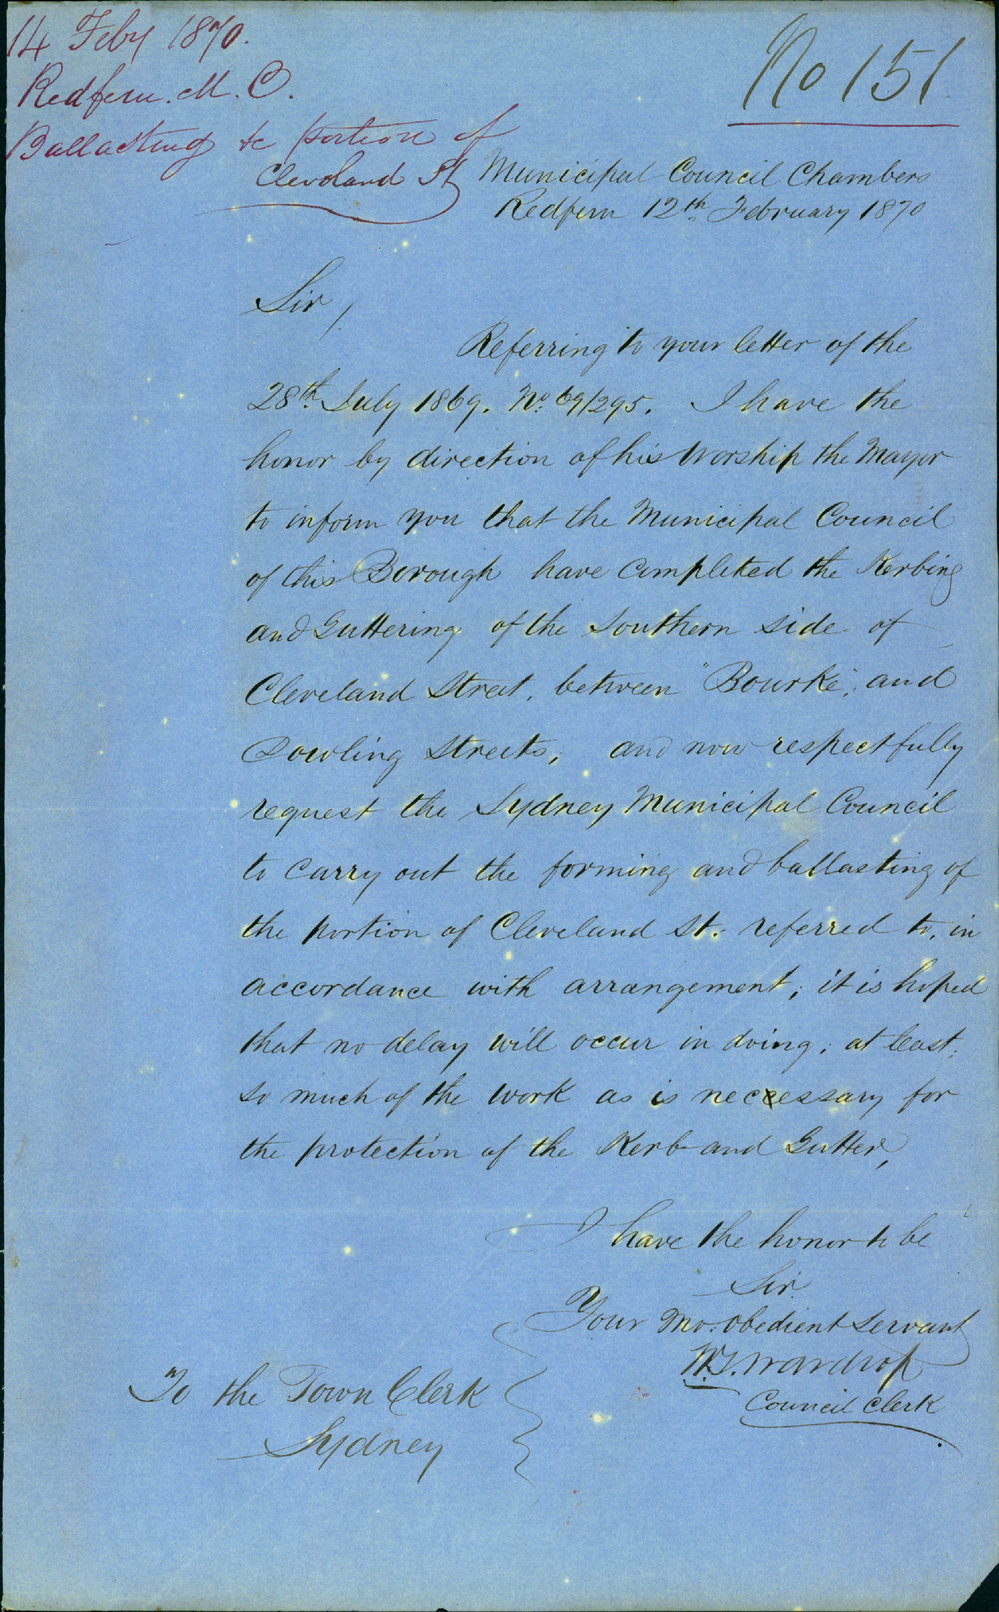 14 Feby 1870.
Redfern. M. C.
Ballasting &c portion of
Cleveland St
No 151
Municipal Council Chambers
Redfern 12th February 1870
Sir,
Referring to your letter of the
28th July 1869. No. 69/295. I have the
honor by direction of his Worship the Mayor
to inform you that the Municipal Council
of this Borough have completed the Kerbing
and Guttering of the Southern side of
Cleveland Street, between "Bourke", and
Dowling Streets; and now respectfully
request the Sydney Municipal Council
to carry out the forming and ballasting of
the portion of Cleveland St. referred to, in
accordance with arrangement; it is hoped
that no delay will occur in doing; at least,
so much of the work as is necessary for
the protection of the Kerb and Gutter,
I have the honor to be
Sir
Your Mo. obedient Servant
W.T. Wardrop
Council Clerk
To the Town Clerk
Sydney